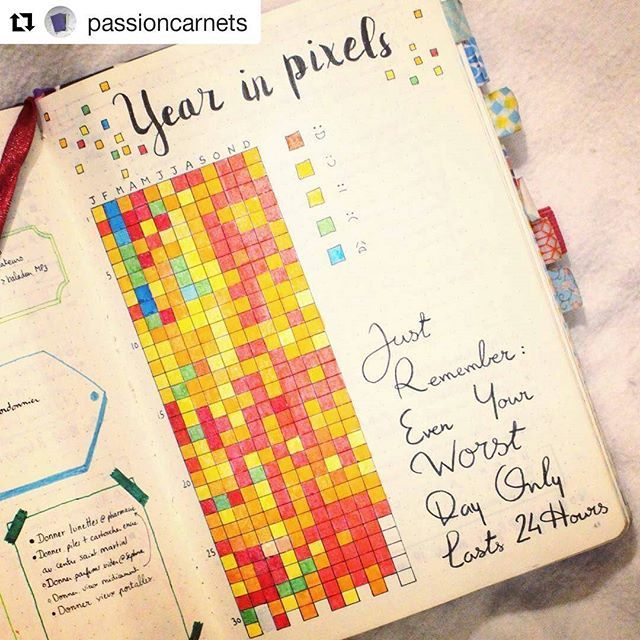 passioncarnets
Year in pixels
J F M A M J J A S O N D
1
5
10
15
20
25
30
Just
Remember:
Even Your
Worst
Day Only
lasts 24 Hours
ateurs
> baladeur MP3
ordonnier
• Donner lunettes @ pharmacie
• Donner piles + cartouche encre
au centre saint martial
• Donner vieux portables